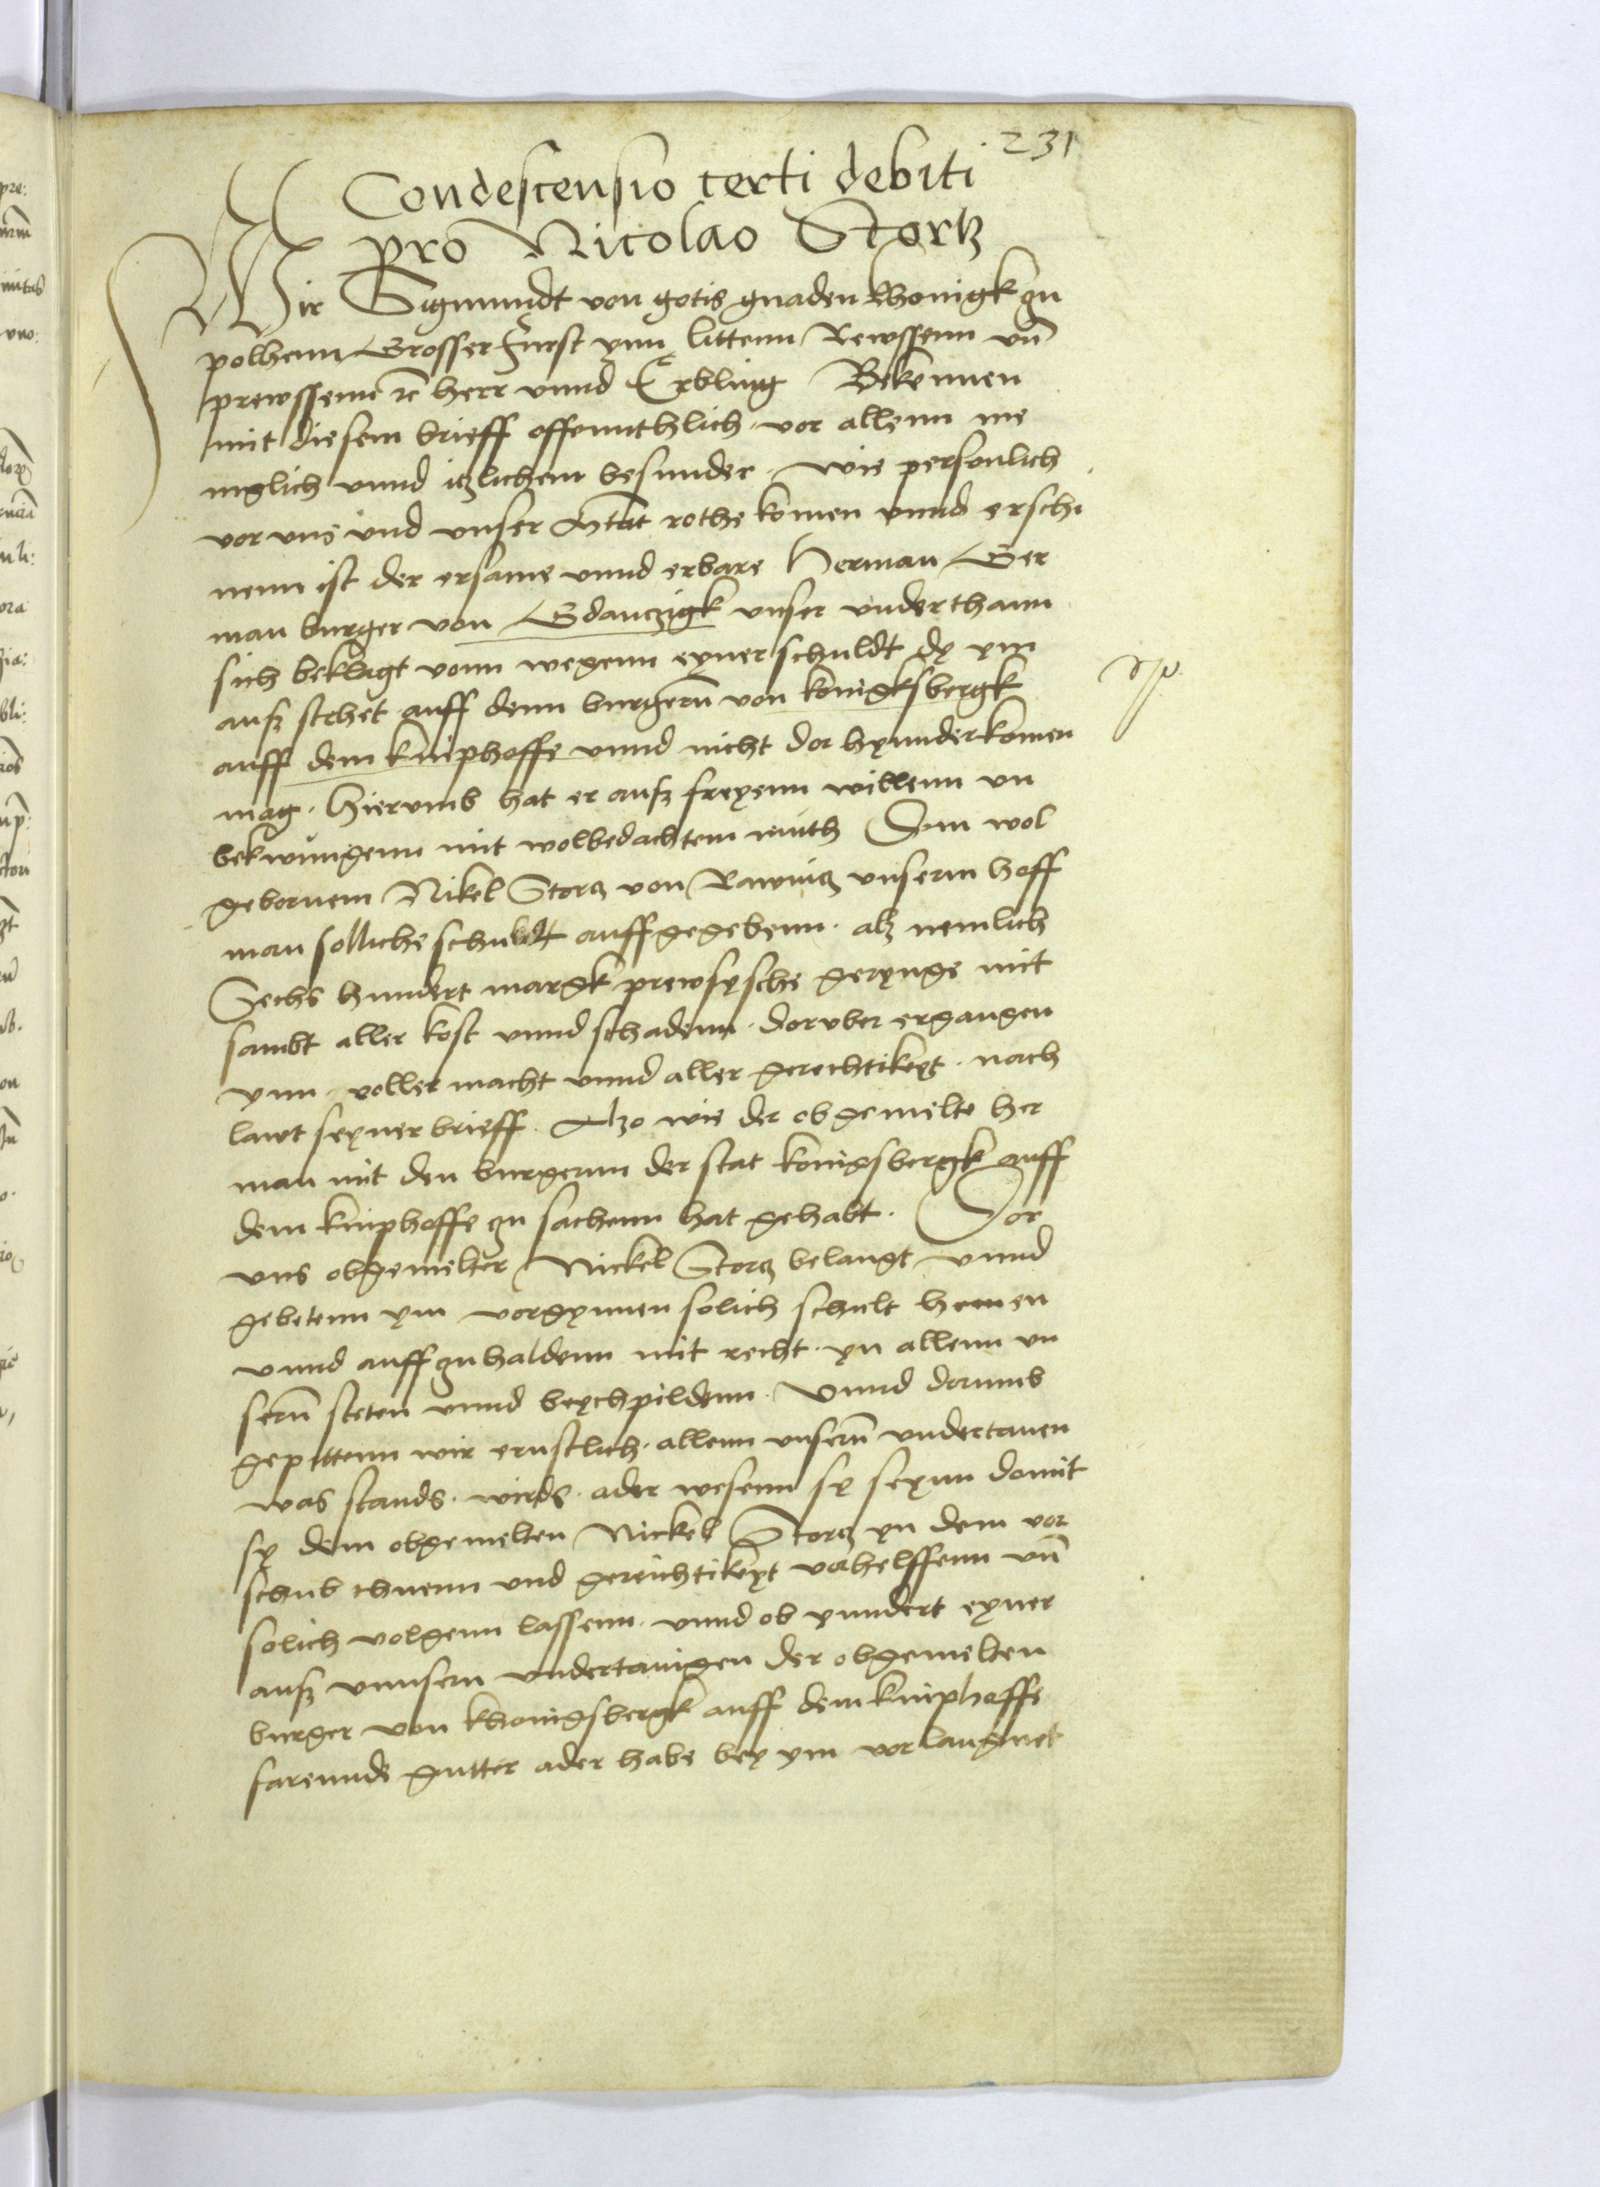 231
Condescensio certi debiti
pro Nicolao Stortz
Wir Sigmundt von gotis gnaden Khonigk zu
polhenn Grosser Furst ynn littenn Rewssenn vn̄
prewssenne rc̄ herr vnnd Erbling Bekennen
mit diesem brieff offennthlich vor allenn me
niglich vnnd itzlichem besunder wie personlich
vor vns vnd vnser Mtat rothe komen vnnd erschi
nenn ist der ersame vnnd erbare Herman Ger
man burger von Gdanczigk vnser vnderthann
sich beklagt vonn wegenn eyner schuldt dy ym
ausz stehet auff denn burgern̄ von konigksbergk
auff dem kniphoffe vnnd nicht dor hynnderkomen
mag. Hiervmb hat er ausz freyenn willenn vn
bekwungenn mit wolbedachtem muth Dem wol
gebornem Nikel Stortz von Rawnitz vnserm hoff
man solliche schuldt auffgegebenn. alz nemlich
Sechs hundert margk prewsysche gerynge mit
sambt aller kost vnnd schadenn. dorvber ergangen
ynn voller macht vnnd aller gerechtikeyt. nach
lawt seyner brieff. Alzo wie der obgemelte her
man mit den burgernn der stat konigsbergk auff
dem kniphoffe zu sachenn hat gehabt. Vor
vns obgemelter Nickel Stortz belangt vnnd
gebetenn ym vorgynnen solich schult
vnnd auffzuhaldenn mit recht. yn allenn vn
sern̄ steten vnnd beychpildenn. Vnnd dorumb
gepittenn wir ernstlich. allenn vnsern̄ vndertanen
was stands. wirds. ader wesenn sy seynn domit
sy dem obgemelten Nickel Stortz yn dem vor
schub thuenn vnd gereichtikeyt vorhelffenn vn̄
solich volgenn lassenn. vnnd ob yndert eyner
ausz vnnsern vndertanigen der obgemelten
burger von Khonigsbergk auff dem kniphoffe
farennde gutter ader habe bey ym vorlaugnet